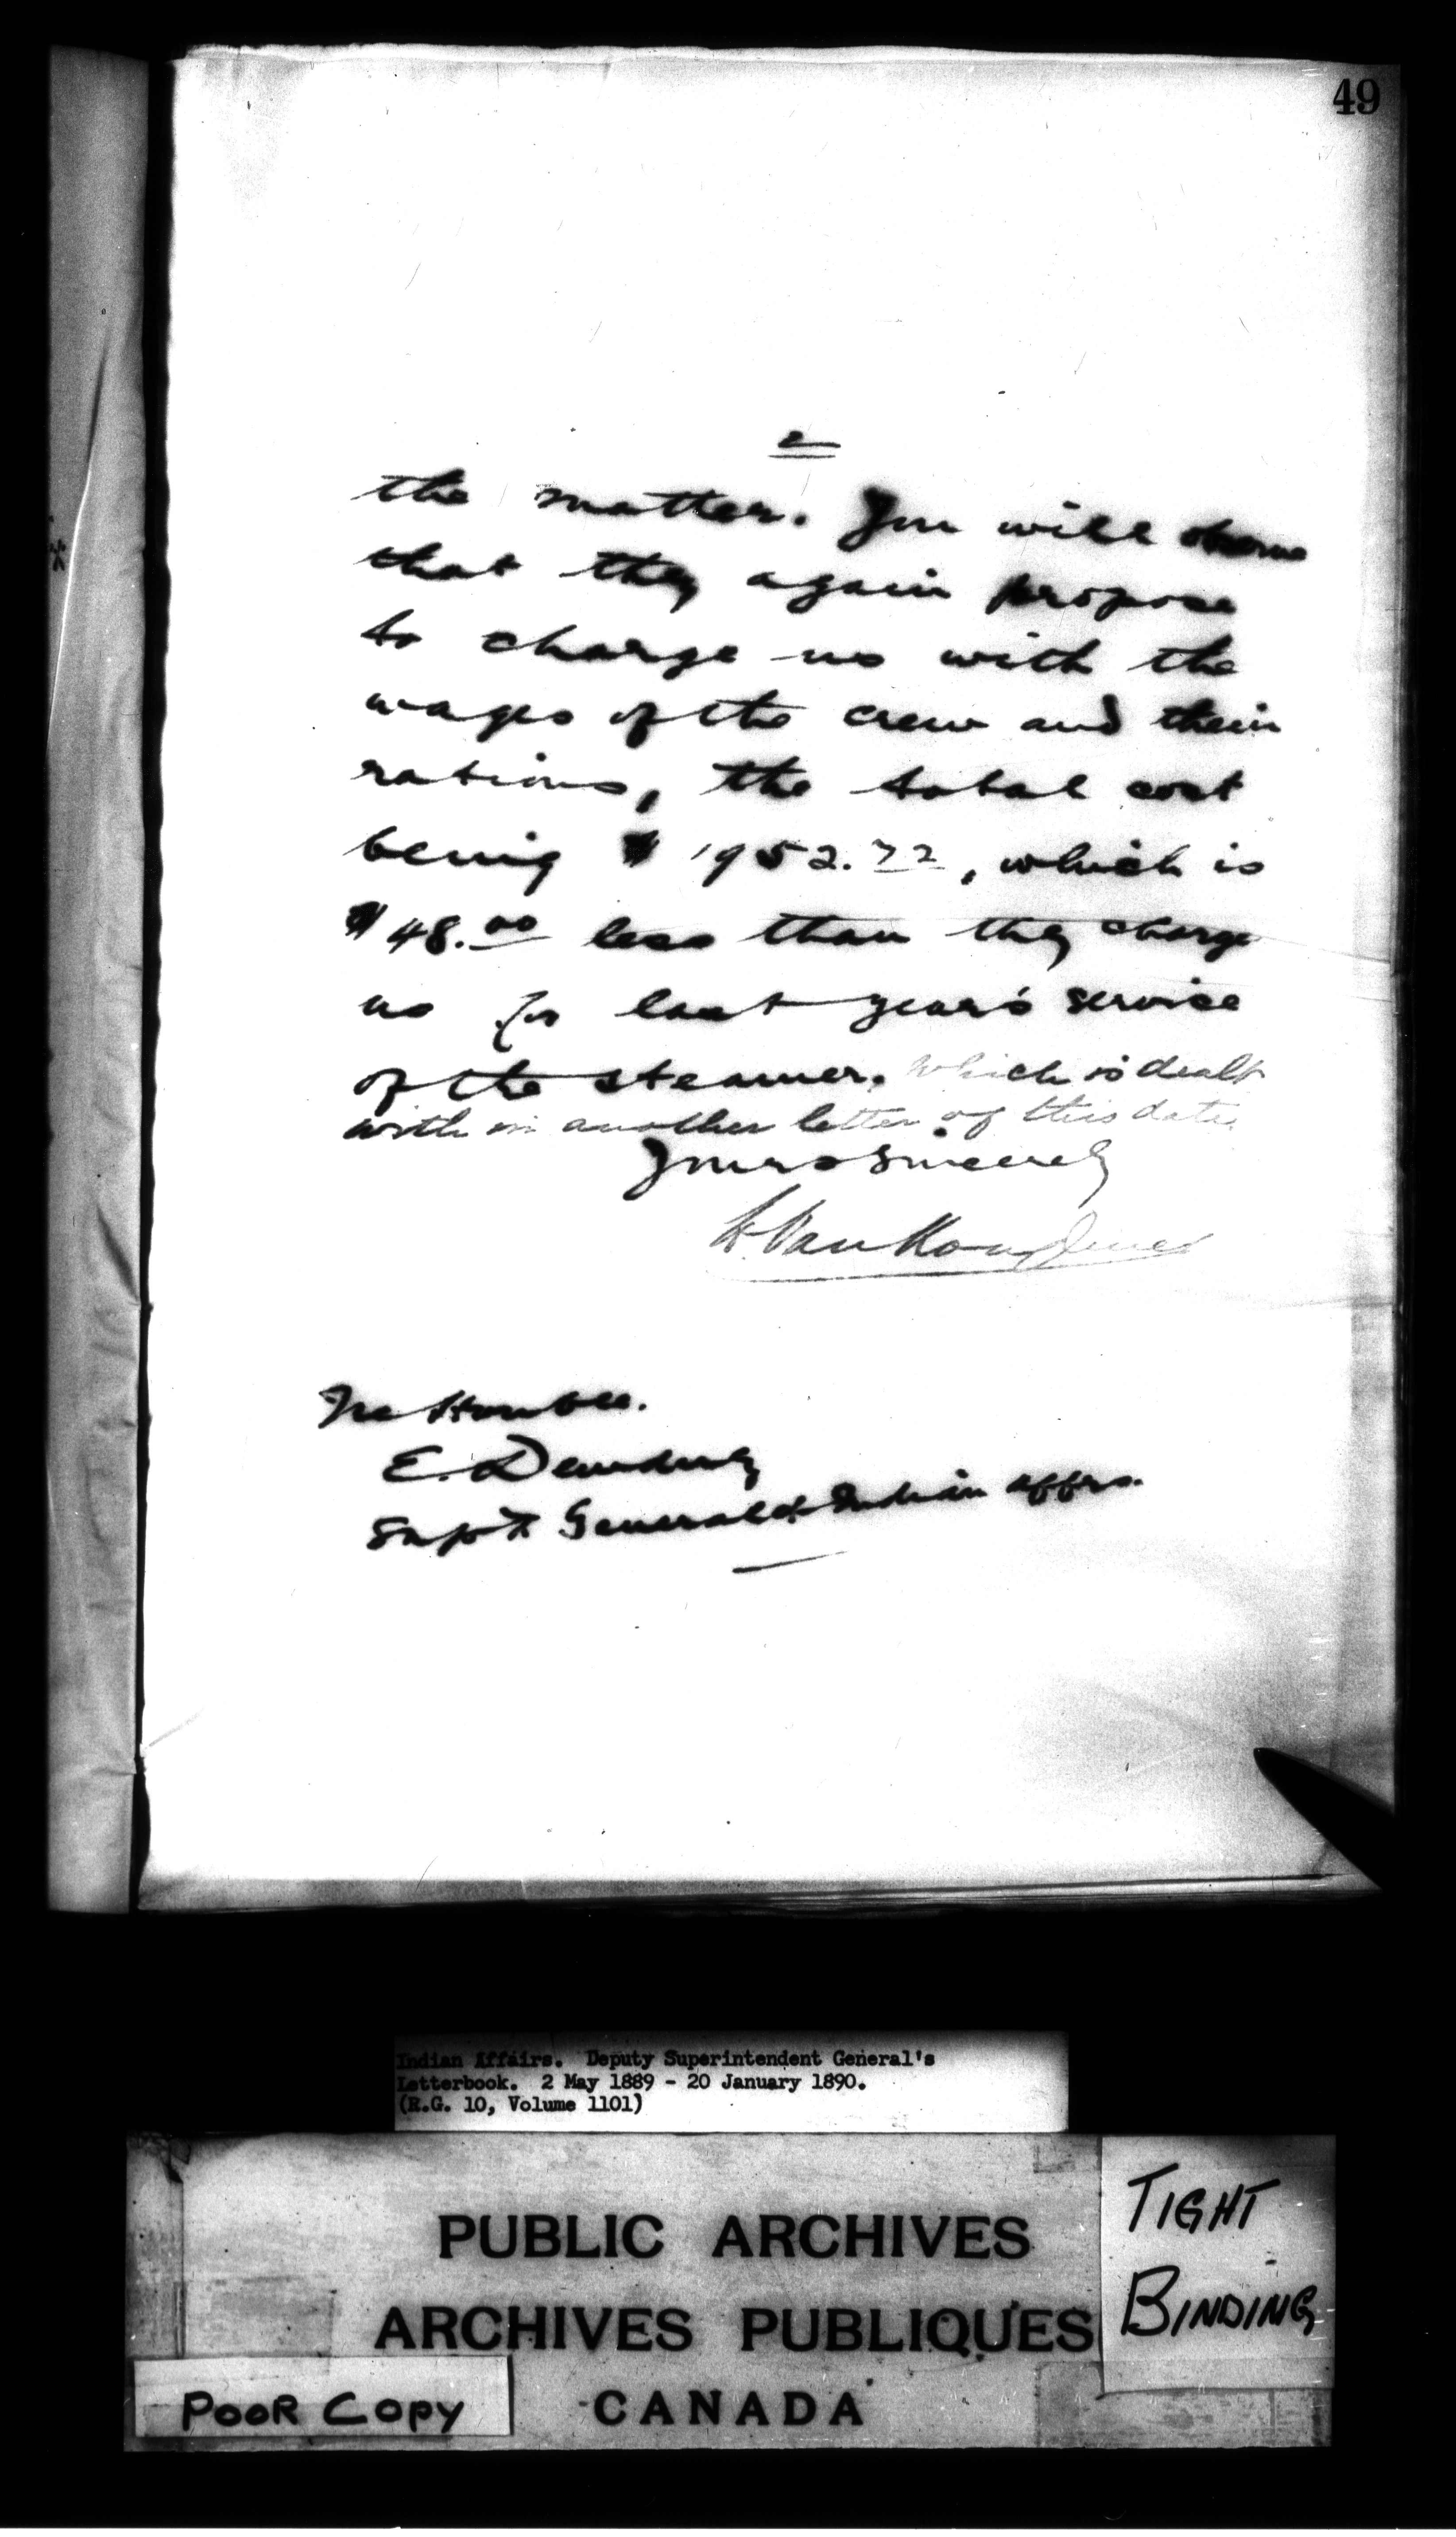 49
2
the matter. You will observe
that they again propose
to charge us with the
wages of the crew and their
rations, the total cost
being $1952.72, which is
$48.00 less than they charge
us for last year's service
of the steamer. which is dealt
with in another letter of this date.
Yours sincerely
L. VanKoughnet
The Honble.
E. Dewdney
Supt General of Indian Affrs.
Indian Affairs. Deputy Superintendent General's
Letterbook. 2 May 1889 - 20 January 1890.
(R.G. 10, Volume 1101)
PUBLIC ARCHIVES
ARCHIVES PUBLIQUES
CANADA
TIGHT
BINDING
POOR COPY